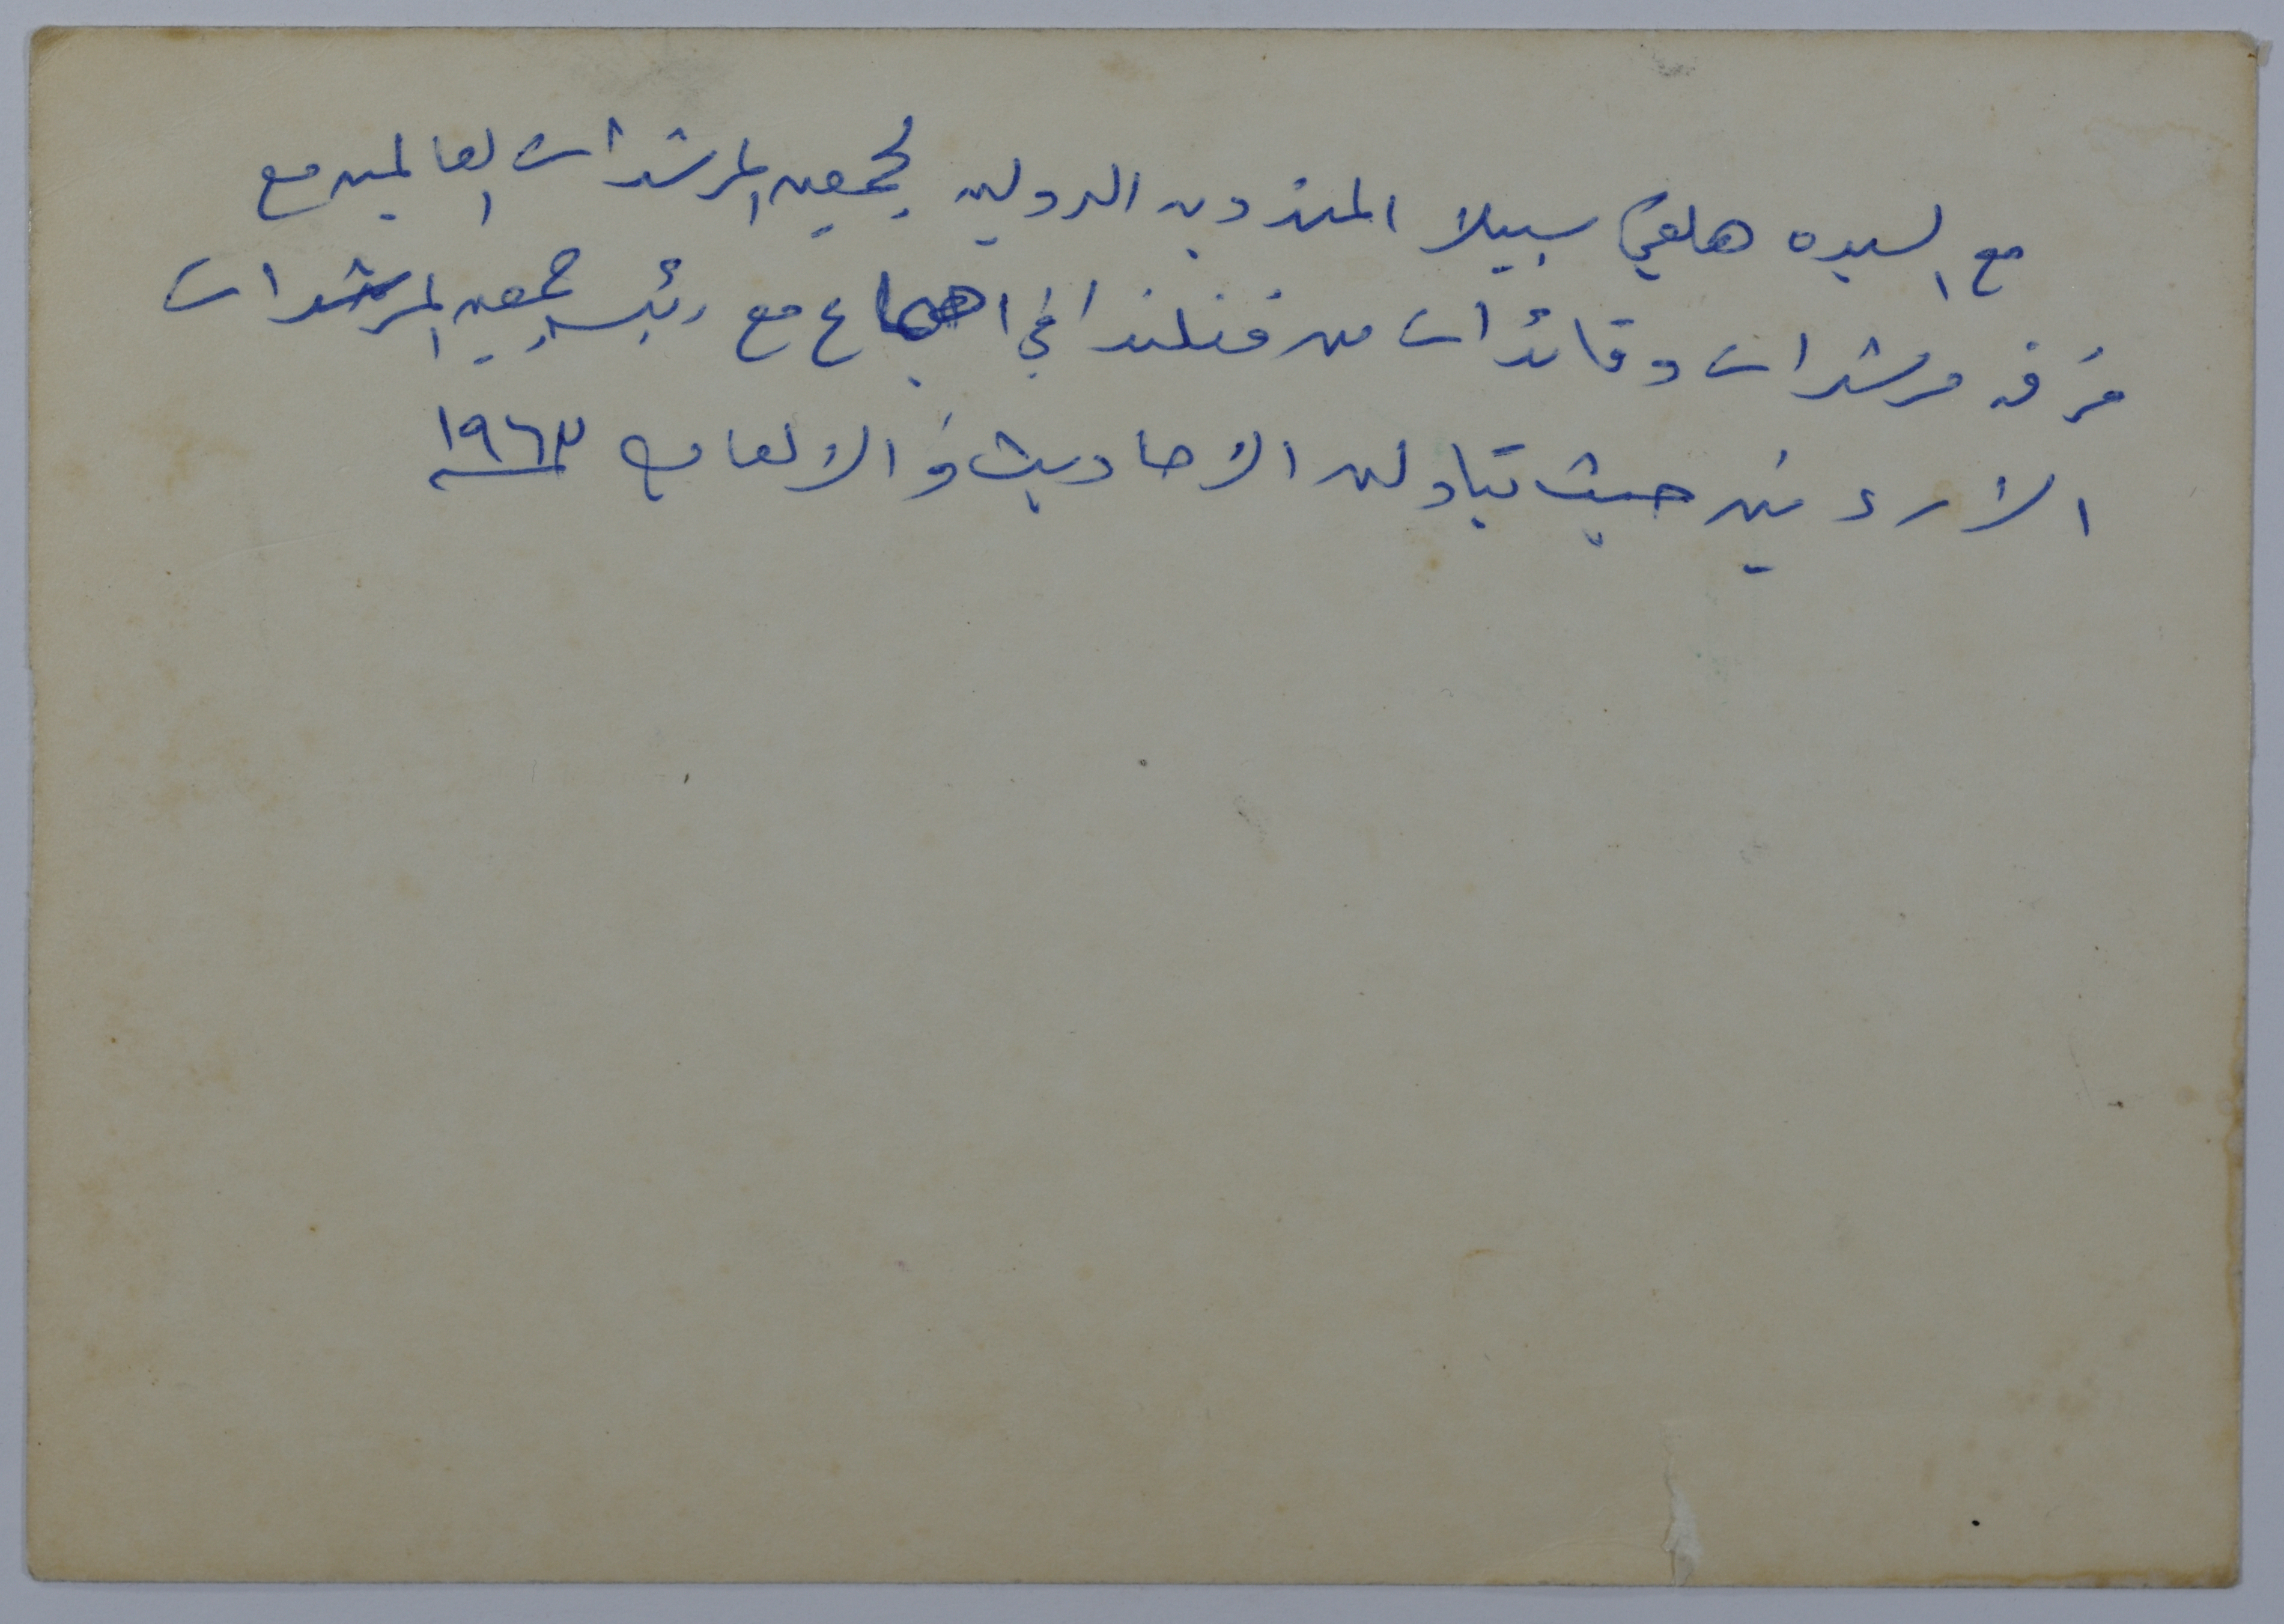 مع السيده هلفي سيبلا المندوبه الدوليه لجمعيه المرشدات العالميه مع
فرقه مرشدات وقائدات من فنلندا في اجتماع مع رئيسه جمعيه المرشدات
الاردنيه حيث تبادلن الاحاديث والالعاب ١٩٦٣